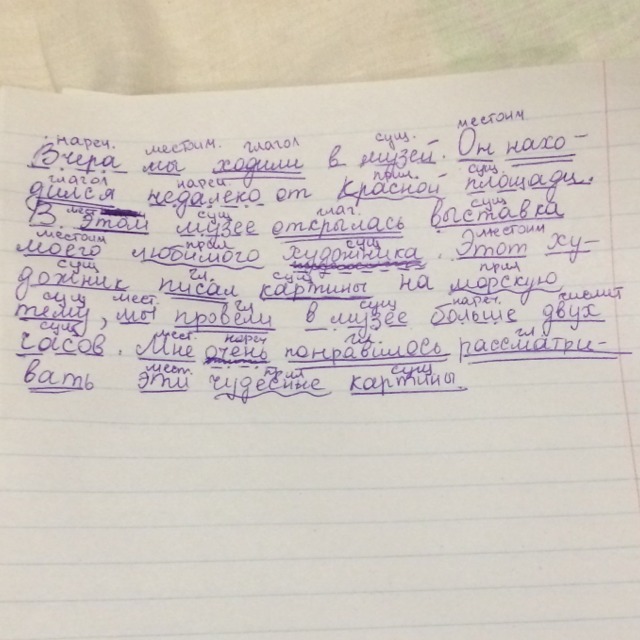 нареч. местоим. глагол сущ. местоим
Вчера мы ходили в музей. Он нахо-
глагол нареч прил. сущ.
дился недалеко от Красной площади.
мест сущ глаг. сущ
В этом музее открылась выставка
местоим прил сущ местоим
моего любимого художника. Этот ху-
сущ гл. сущ прил
дожник писал картины на морскую
сущ мест. гл сущ нареч. числит
тему, мы провели в музее больше двух
сущ мест. нареч гл. гл
часов. Мне очень понравилось рассматри-
мест. прил сущ
вать эти чудесные картины.